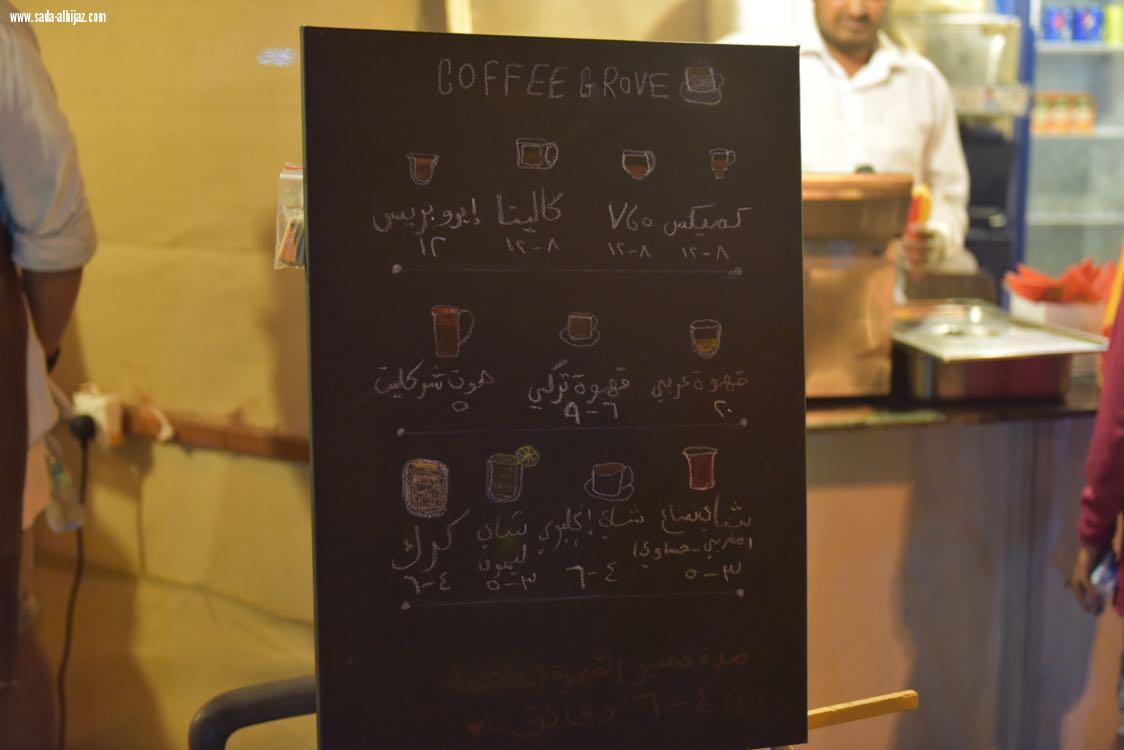 www.sada-alhijaz.com
COFFEE GROVE
كميكس V٦٠ كاليتا إيروبريس
٨-١٢ ٨-١٢ ٨-١٢ ١٢
قهوة عربي قهوة تركي هوت شوكليت
٢٠ ٦-٩ ٥
شاي نعناع شاي إنجليزي شاي ليمون كرك
(مغربي-حساوي)
٣-٥ ٤-٦ ٣-٥ ٤-٦
مدة تحضير القهوة المختصة
من ٤-٦ دقائق..♥